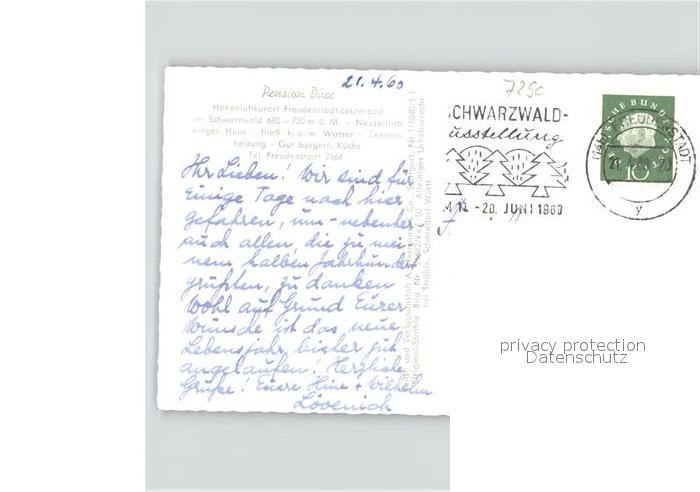 21.4.60
725c
Pension
Höhenluftkurort Freudenstadt-Lauterbad
im Schwarzwald 680 - 720 m ü. M. - Neuzeitlich
einger. Haus - fließ. k. u. w. Wasser - Zentral-
heizung - Gut bürgerl. Küche
Tel. Freudenstadt 2464
Ihr Lieben! Wir sind für
einige Tage nach hier
gefahren, um - nebenher
auch allen, die zu mei-
nem halben Jahrhundert
grüßten, zu danken
Wohl auf Grund Eurer
Wünsche ist das neue
Lebensjahr bisher gut
angelaufen! Herzliche
Grüße! Eure + Wilhelm
Lövenich
CHWARZWALD-
usstellung
11. - 20. JUNI 1960
FREUDENSTADT
y
DEUTSCHE BUNDESPOST
10
privacy protection
Datenschutz